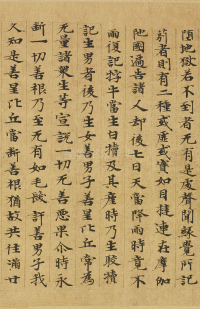 墮地獄若不到者无有是處聲聞緣覺所記
莂者則有二種或虛或實如目揵連在摩伽
陁國遍告諸人却後七日天當降雨時竟不
雨復記牸牛當生白犢及其產時乃生駮犢
記生男者後乃生女善男子善星比丘常為
无量諸衆生等宣說一切无善惡果尒時永
斷一切善根乃至无有如毛髮許善男子我
久知是善星比丘當斷善根猶故共住滿廿